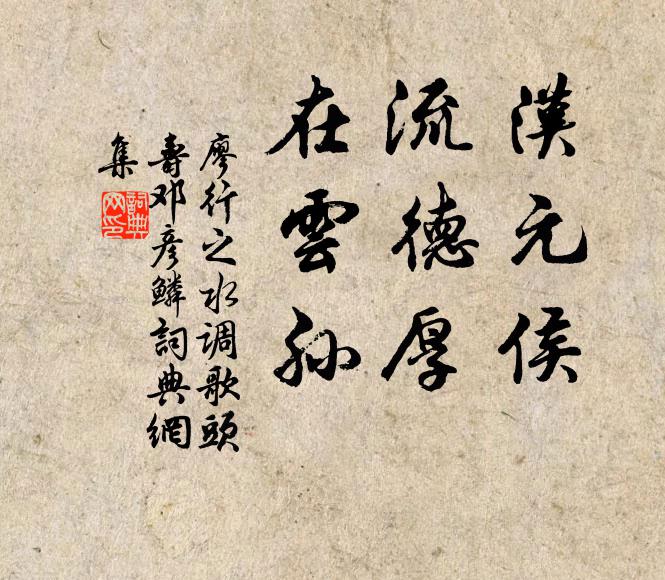 漢元侯
流德厚
在雲孙
廖行之水调歌頭
壽邓彦鳞詞典網
集
詞典
网印